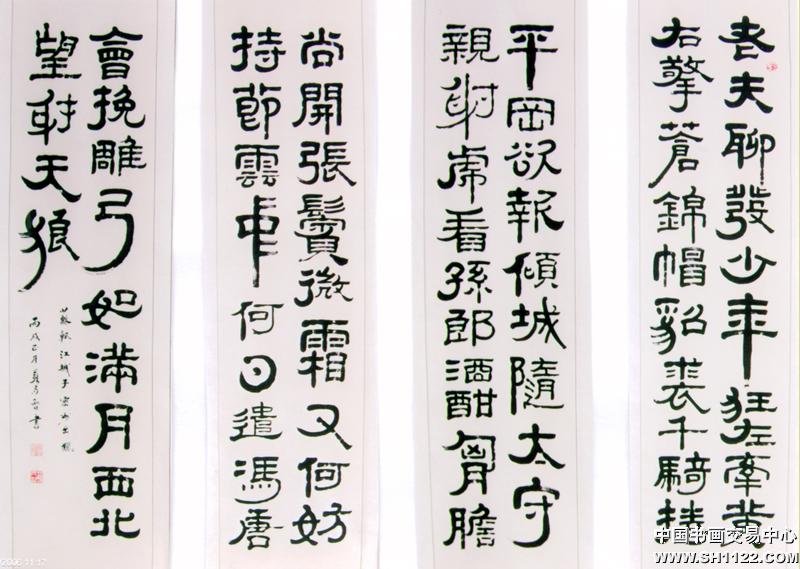 老夫聊發少年狂左牽黃
右擎蒼錦帽貂裘千騎捲
平岡欲報傾城隨太守
親射虎看孫郎酒酣胸膽
尚開張鬢微霜又何妨
持節雲中何日遣馮唐
會挽雕弓如滿月西北
望射天狼
蘇軾江城子密州出獵
丙戌正月書
中国书画交易中心
www.SH1122.com